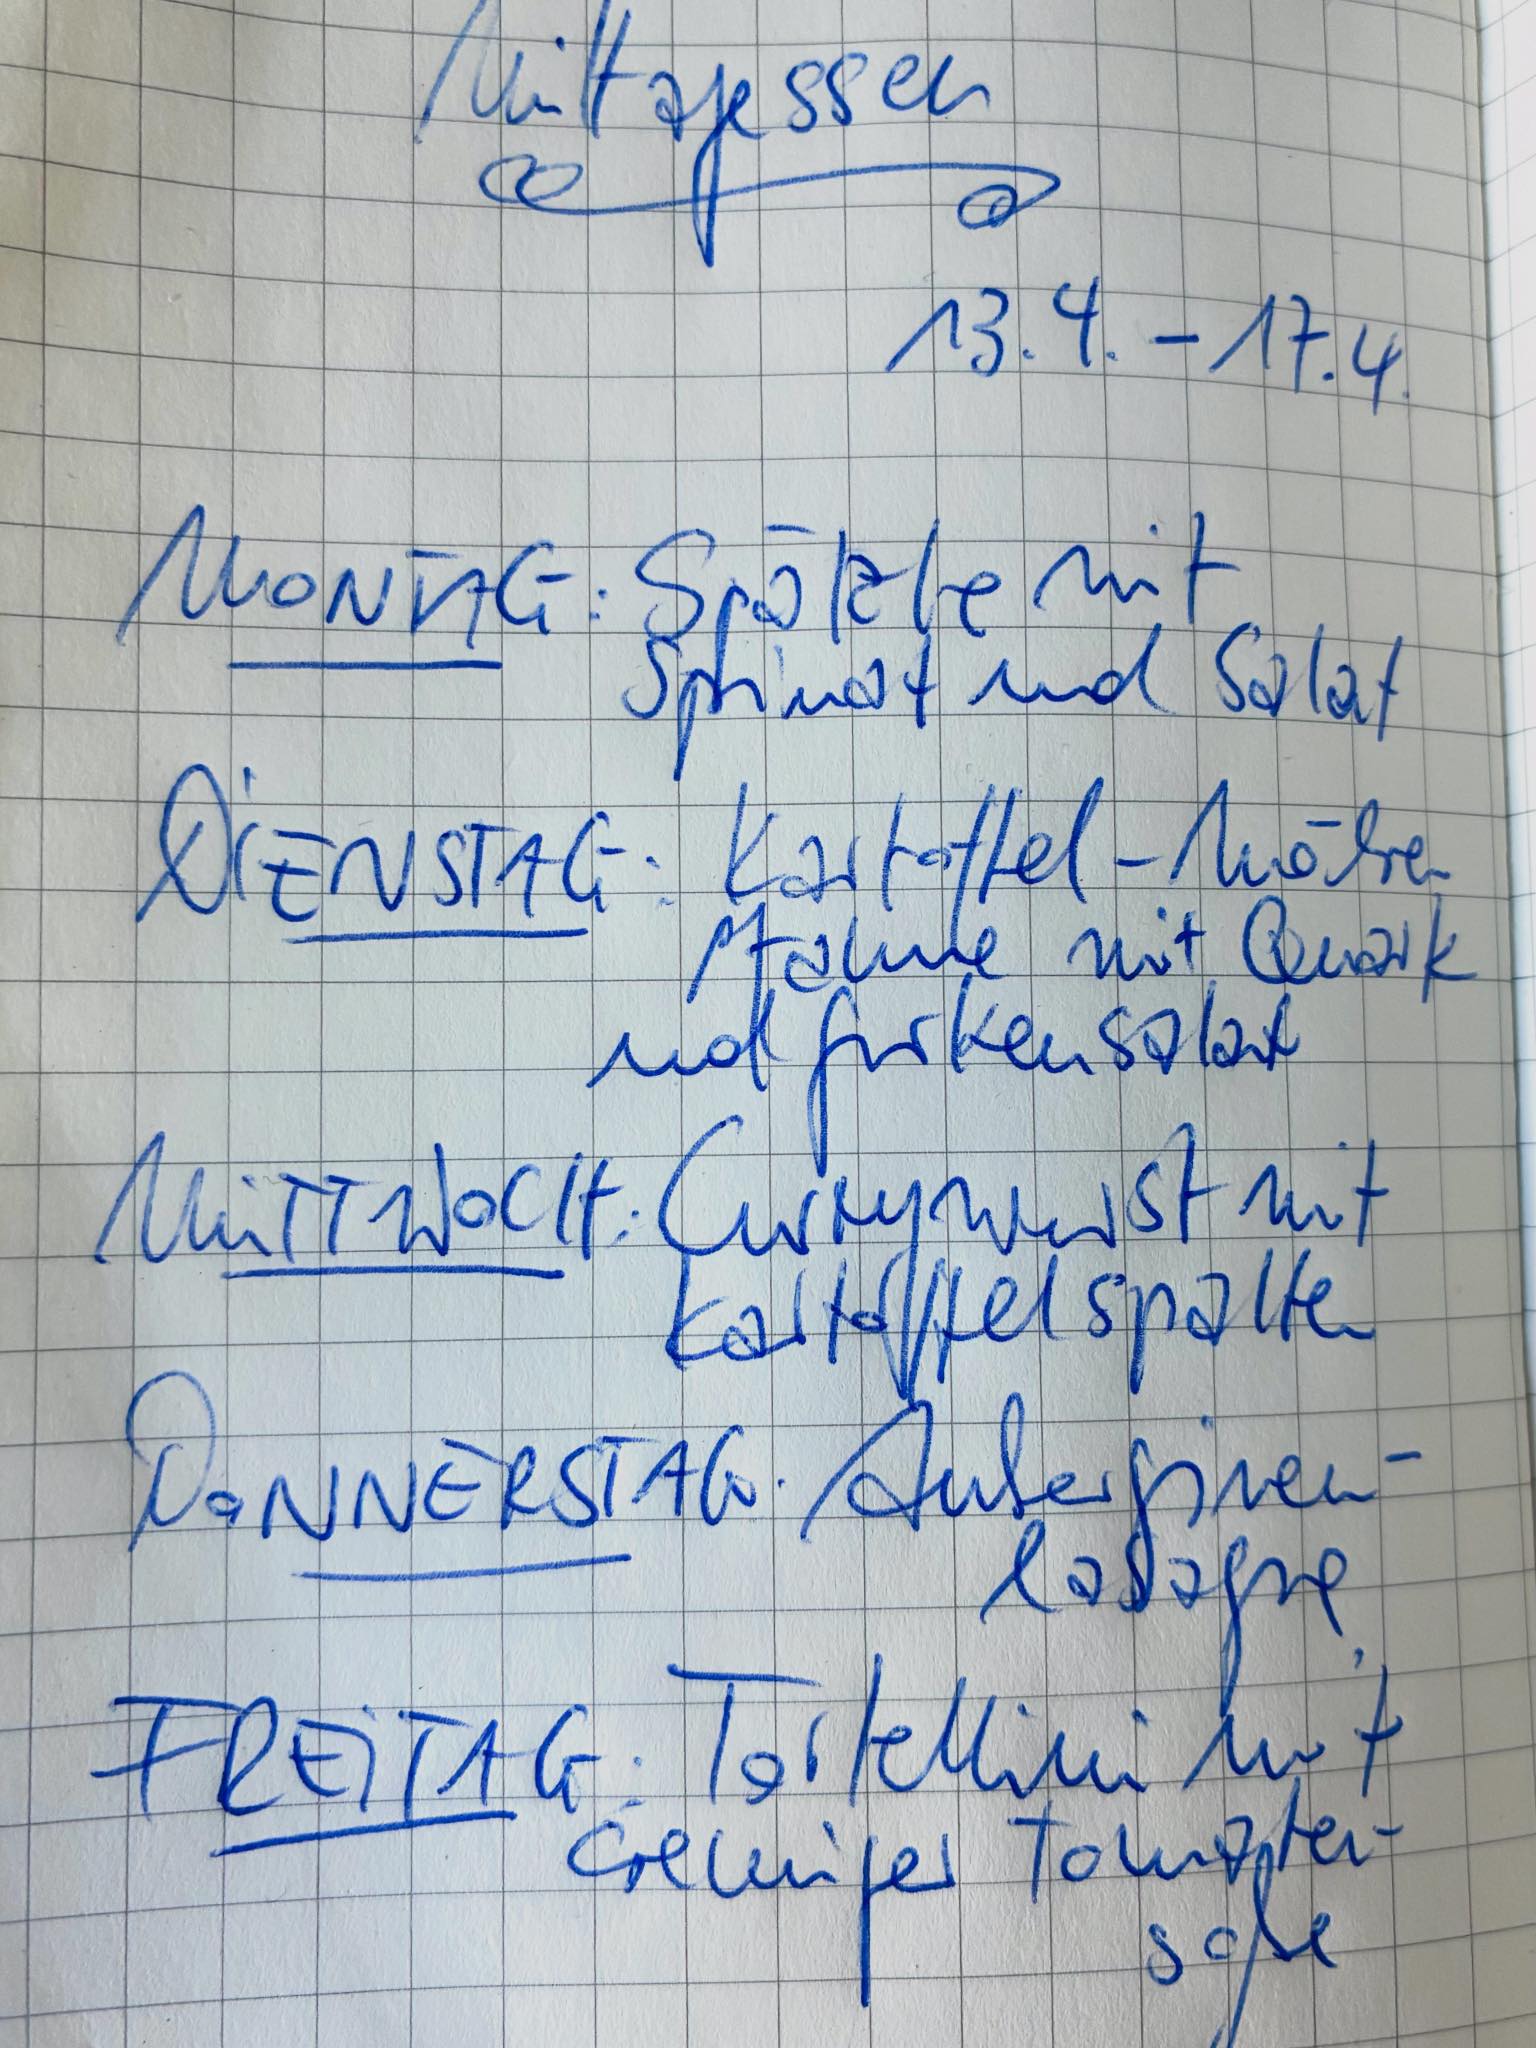 Mittagessen
13.4. - 17.4.
MONTAG: Spätzle mit
Spinat und Salat
DIENSTAG: Kartoffel-Möhren
Pfanne mit Quark
und Gurkensalat
MITTWOCH: Currywurst mit
Kartoffelspalten
DONNERSTAG: Auberginen-
lasagne
FREITAG: Tortellini mit
cremiger Tomaten-
soße